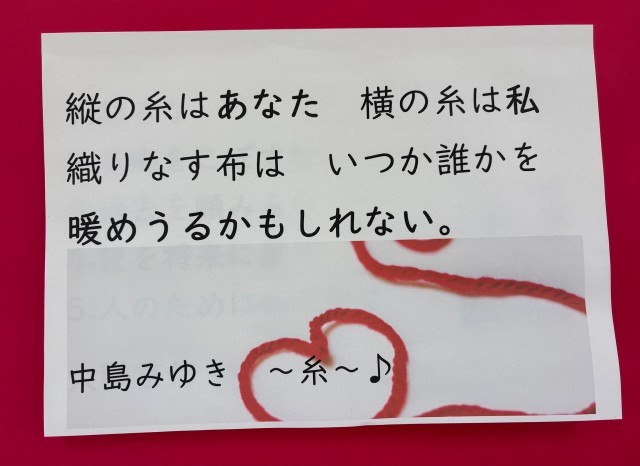 縦の糸はあなた　横の糸は私
織りなす布は　いつか誰かを
暖めうるかもしれない。
中島みゆき　～糸～♪
5.人のために